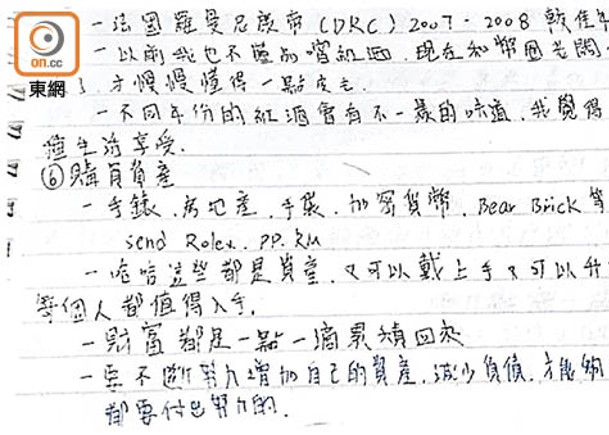 on.cc
東網
一法國羅曼尼康帝 (DRC) 2007-2008 較佳年
一以前我也不懂品嚐紅酒,現在和幣圈老闆
,才慢慢懂得一點皮毛.
一不同年份的紅酒會有不一樣的味道,我覺得
種生活享受.
⑥購買資產
一手錶、房地產、手袋、加密貨幣、Bear Brick 等
send Rolex、PP、RM
一哈哈這些都是資產,又可以戴上手又可以升
等個人都值得入手.
一財富都是一點一滴累積回來
一要不斷努力增加自己的資產,減少負債,才能夠
都要付出努力的.